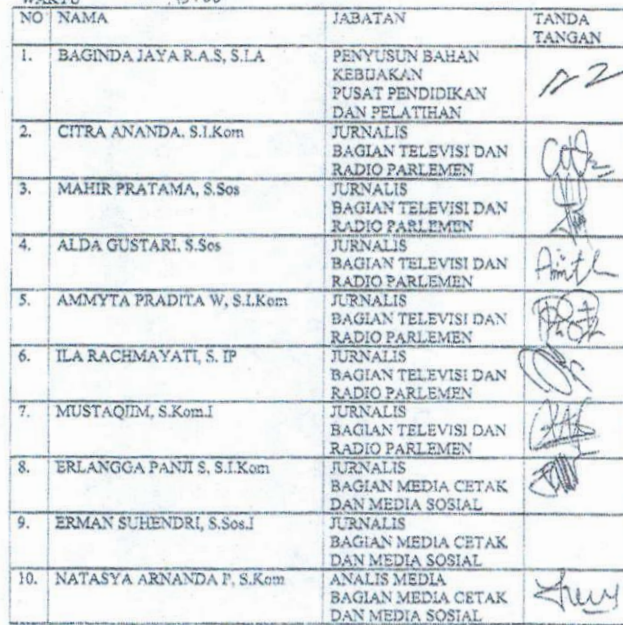 WAKTU
NO NAMA JABATAN TANDA
TANGAN
1. BAGINDA JAYA R.A.S, S.I.A PENYUSUN BAHAN
KEBIJAKAN
PUSAT PENDIDIKAN
DAN PELATIHAN
2. CITRA ANANDA, S.I.Kom JURNALIS
BAGIAN TELEVISI DAN
RADIO PARLEMEN
3. MAHIR PRATAMA, S.Sos JURNALIS
BAGIAN TELEVISI DAN
RADIO PARLEMEN
4. ALDA GUSTARI, S.Sos JURNALIS
BAGIAN TELEVISI DAN
RADIO PARLEMEN
5. AMMYTA PRADITA W, S.I.Kom JURNALIS
BAGIAN TELEVISI DAN
RADIO PARLEMEN
6. ILA RACHMAYATI, S. IP JURNALIS
BAGIAN TELEVISI DAN
RADIO PARLEMEN
7. MUSTAQIIM, S.Kom.I JURNALIS
BAGIAN TELEVISI DAN
RADIO PARLEMEN
8. ERLANGGA PANJI S, S.I.Kom JURNALIS
BAGIAN MEDIA CETAK
DAN MEDIA SOSIAL
9. ERMAN SUHENDRI, S.Sos.I JURNALIS
BAGIAN MEDIA CETAK
DAN MEDIA SOSIAL
10. NATASYA ARNANDA P, S.Kom ANALIS MEDIA
BAGIAN MEDIA CETAK
DAN MEDIA SOSIAL